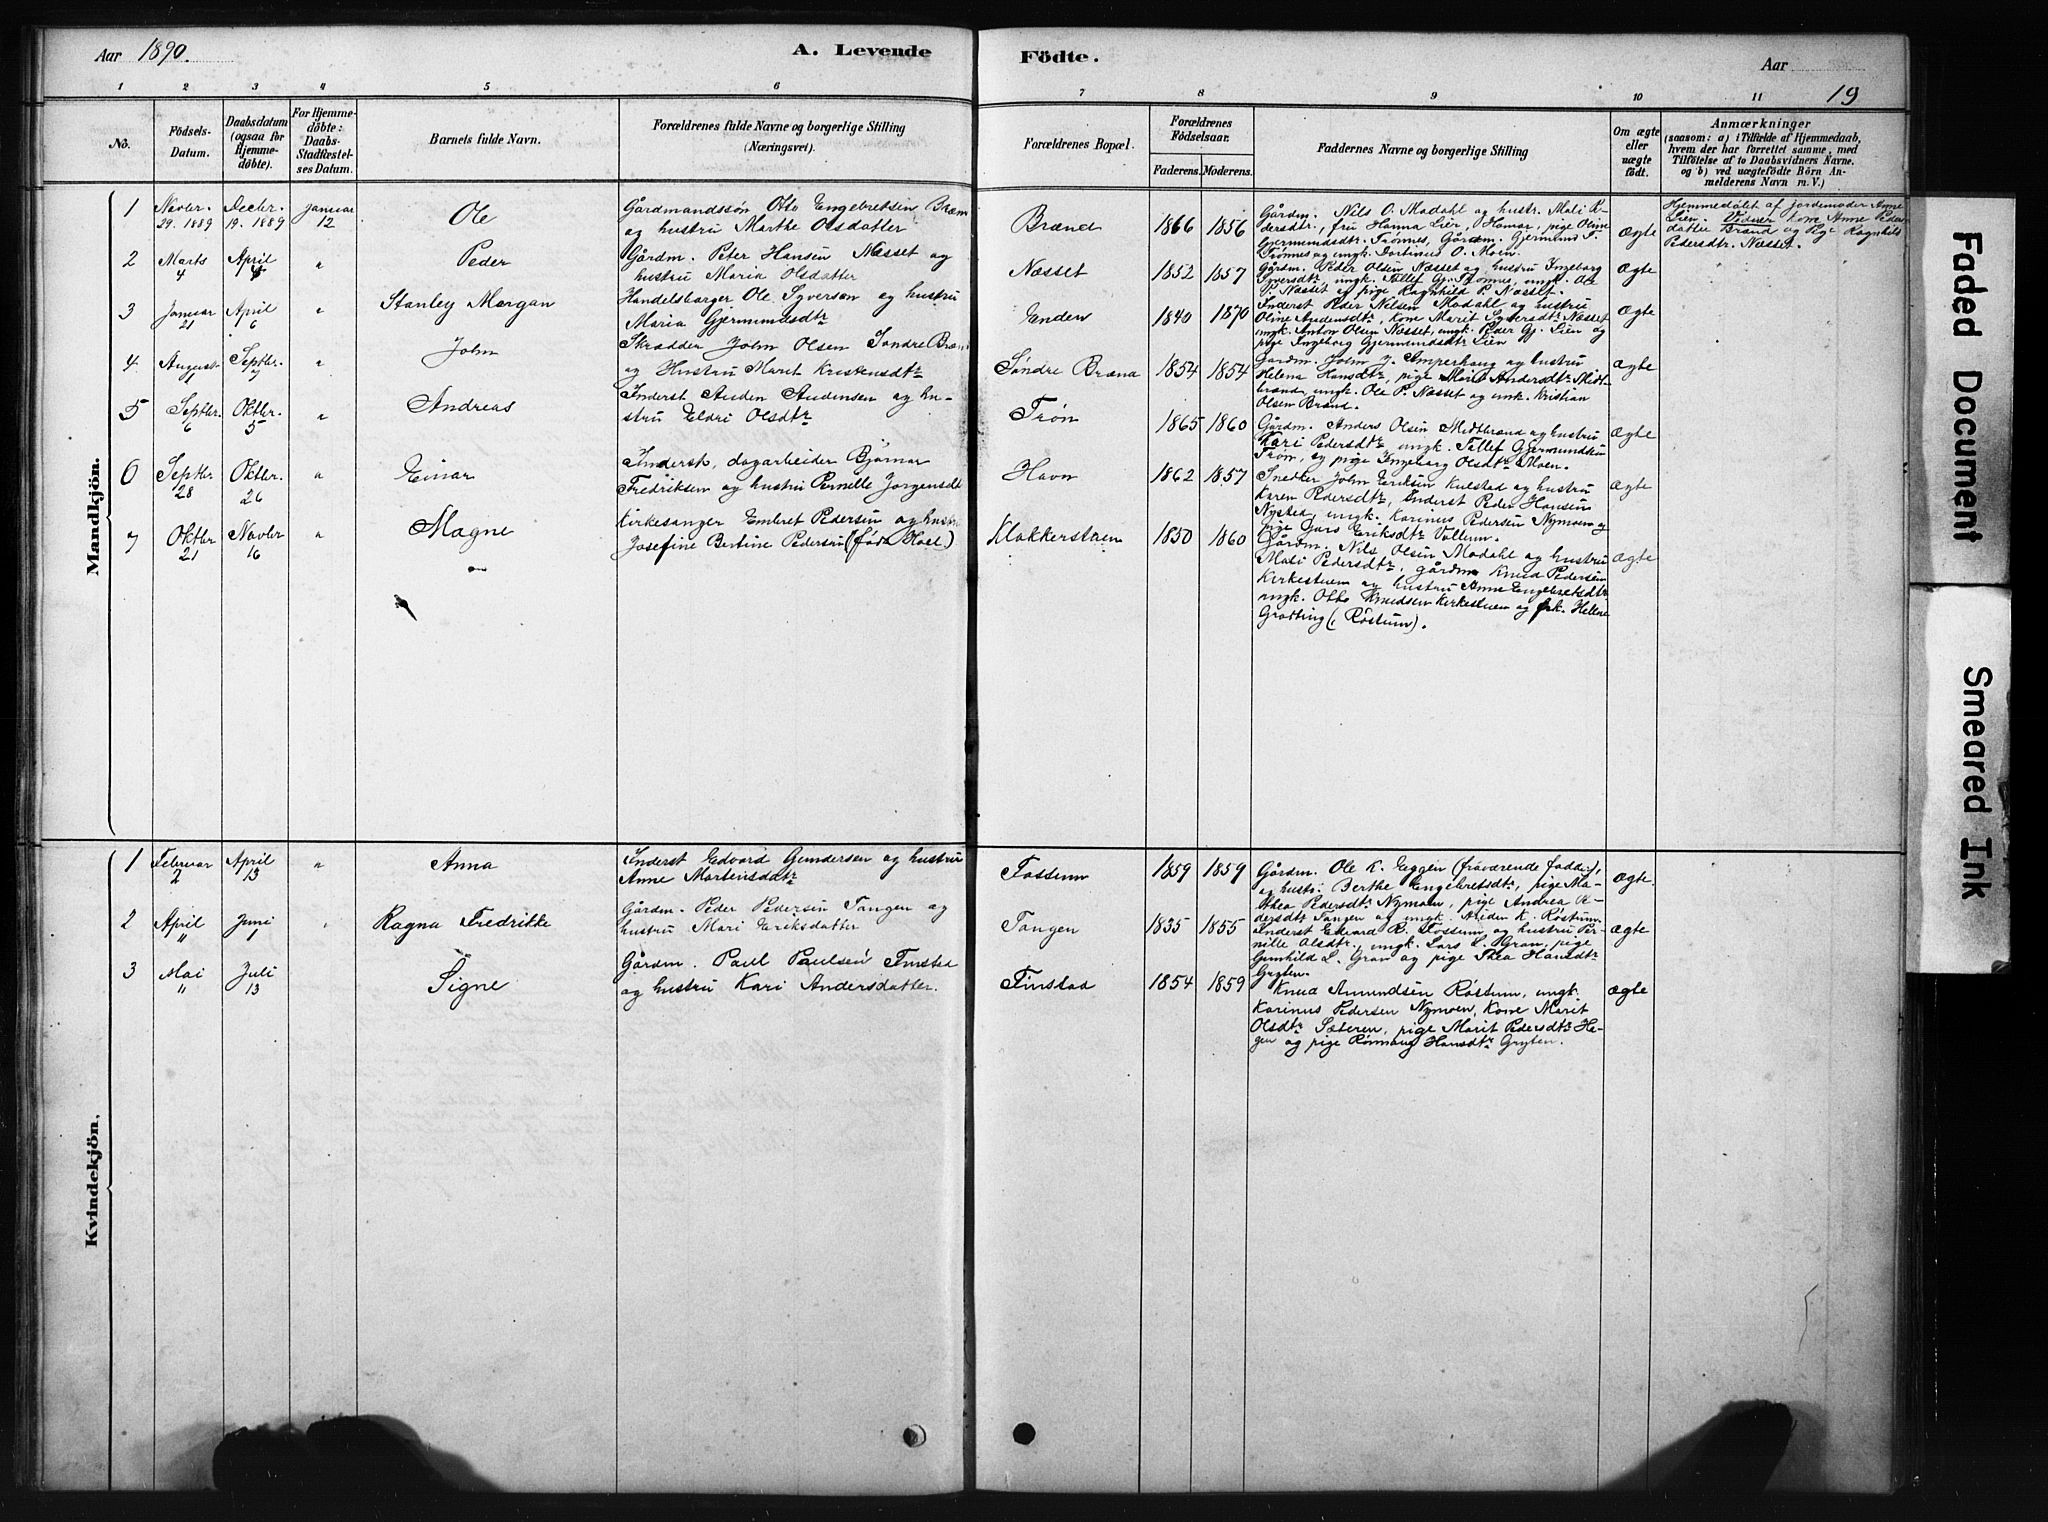 Aar 1890.
A. Levende
Födte.
Aar
19
1 2 3 4 5 6 7 8 9 10 11
No.
Födsels-
Datum.
Daabsdatum
(ogsaa for
Hjemme-
döbte).
For Hjemme-
döbte:
Daabs-
Stadfæstel-
ses Datum.
Barnets fulde Navn.
Forældrenes fulde Navne og borgerlige Stilling
(Næringsvei).
Forældrenes Bopæl.
Forældrenes
Födselsaar.
Faderens. Moderens.
Faddernes Navne og borgerlige Stilling
Om ægte
eller
uægte
födt.
Anmærkninger
(saasom: a) i Tilfælde af Hjemmedaab,
hvem der har forrettet samme, med
Tilföielse af to Daabsvidners Navne.
og b) ved uægtefödte Börn An-
melderens Navn m. V.)
Mandkjön.
1 Novbr. 29. 1889 Decbr. 19. 1889 Januar 12
Ole
Gårdmandssön Otto Engebretsen Bræn
og hustru Marthe Olsdatter
Brænd
1866 1856
Gårdm. Nils O. Modahl og hustr. Mali P-
dersdtr., fru Hanna Lier, Hamar, pige Oline
Gjermundsdtr. Trønnes, Gårdm. Gjermund
Trønnes og ungk. O. Moen.
Ægte
Hjemmedøbt af jordemoder Anne
Lien. Vidner kone Anne Peders
datter Brænd og Pige Ragnhild
Pedersdtr. Næsset.
2 Marts 4 April 4 "
Peder
Gårdm. Peter Hansen Næsset og
hustru Maria Olsdatter
Næsset
1852 1857
Gårdm. Peder Olsen Næsset og hustru Ingeborg
Syversdtr. ungk. Tellef Gj. Trønnes, ungk. Ole
P. Næsset og pige Ragnhild P. Næsset.
Ægte
3 Januar 21 April 6 "
Stanley Morgan
Handelsborger Ole Syversen og hustru
Maria Gjermundsdtr
Enden
1840 1870
Inderst Peder Nilsen Modahl og hustru
Oline Andersdtr., Kone Marit Syversdtr. Næsset
ungk. Anton Olsen Næsset, ungk. Peder Gj. Lien og
pige Ingeborg Gjermundsdtr Lien
Ægte
4 August Septbr. 7 "
John
Skrædder John Olsen Søndre Bræn
og Hustru Marit Kristensdtr
Søndre Bræna
1854 1854
Gårdm. John J. og hustru
Helena Hansdtr, pige Marit Andersdtr Midt-
brænd, ungk. Ole P. Næsset og unk. Kristian
Olsen Brænd.
Ægte
5 Septbr. 6 Oktbr. 5 "
Andreas
Inderst Auden Audensen og hu-
stru Eldri Olsdtr
Trøn
1865 1860
Gårdm. Anders Olsen Midtbrænd og hustru
Kari Pedersdtr ungk. Tellef Gjermundsen
Trøn, og pige Ingeborg Olsdtr Moen.
Ægte
6 Septbr 28 Oktbr. 26 "
Einar
Inderst, dagarbeider Bjørnar
Fredriksen og hustru Pernille Jørgensdt
Havn
1862 1857
Snedker John Eriksen Kulsted og hustru
Karen Pedersdtr, Inderst Peder Hansen
Nysted, ungk. Karinus Pedersen Nymoen og
pige Eriksdtr Vollum.
Ægte
7 Oktbr 21 Novbr 16 "
Magne
Kirkesanger Embret Pedersen og hustr.
Josefine Bertine Pedersen (født Hoel)
Klokkerstuen
1850 1860
Gårdm. Nils Olsen Modahl og hustru
Mali Pedersdtr, gårdm. Knud Pedersen
Kirkestuen og hustru Anne Engebretsdtr
ungk. Otto Knudsen Kirkestuen og frk. Hellene
Grøtting (, Røstum).
Ægte
Kvindekjön.
1 Februar 2 April 13 "
Anna
Inderst Edvard Gundersen og hustru
Anne Martensdtr
Fossum
1859 1859
Gårdm. Ole K. Eggen (fraværende fadder),
og hustr. Berthe Engebretsdtr, pige Ma-
thea Pedersdtr Nymoen, pige Andrea Pe-
dersdtr Tangen og ungk. K. Røstum.
Ægte.
2 April 11 Juni 1 "
Ragna Fredrikke
Gårdm. Peder Pedersen Tangen og
hustru Mari Eriksdatter
Tangen
1835 1855
Inderst Edvard R. Fossum og hustru Per-
nille Olsdtr., ungk. Lars L. Gran, pige
Gunhild L. Gran og pige Thea Hansdtr
Gryten.
Ægte
3 Mai 11 Juli 13
Signe
Gårdm. Paul Paulsen Finstad
og hustru Kari Andersdatter.
Finstad
1854 1859
Knud Amundsen Røstum, ungk.
Karinus Pedersen Nymoen, Kone Marit
Olsdtr Sæteren, pige Marit Pedersdtr He-
gen og pige Rønnaug Hansdtr Gryten.
Ægte
Faded Document
Smeared Ink